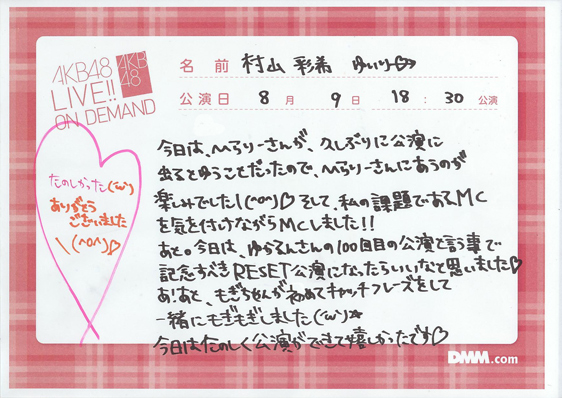 AKB48
LIVE!!
ON DEMAND
AKB
48
名 前 村山 彩希 ゆいり♡
公演日 8 月 9 日 18 : 30 公演
今日は、ひらりーさんが、久しぶりに公演に
出るとゆうことだったので、ひらりーさんにあうのが
楽しみでした!(^o^)♡ そして、私の課題であるMC
を気を付けながらMCしました!!
あと。今日は、ゆかるんさんの100回目の公演と言う事で
記念すべきRESET公演になったらいいなと思いました♡
あ!あと、もぎちゃんが初めてキャッチフレーズをして
一緒にもぎもぎしました(^ω^)☆
今日はたのしく公演ができて嬉しかったです♡
たのしかった(^ω^)
ありがとう
ございました
\(^o^)♡
DMM.com